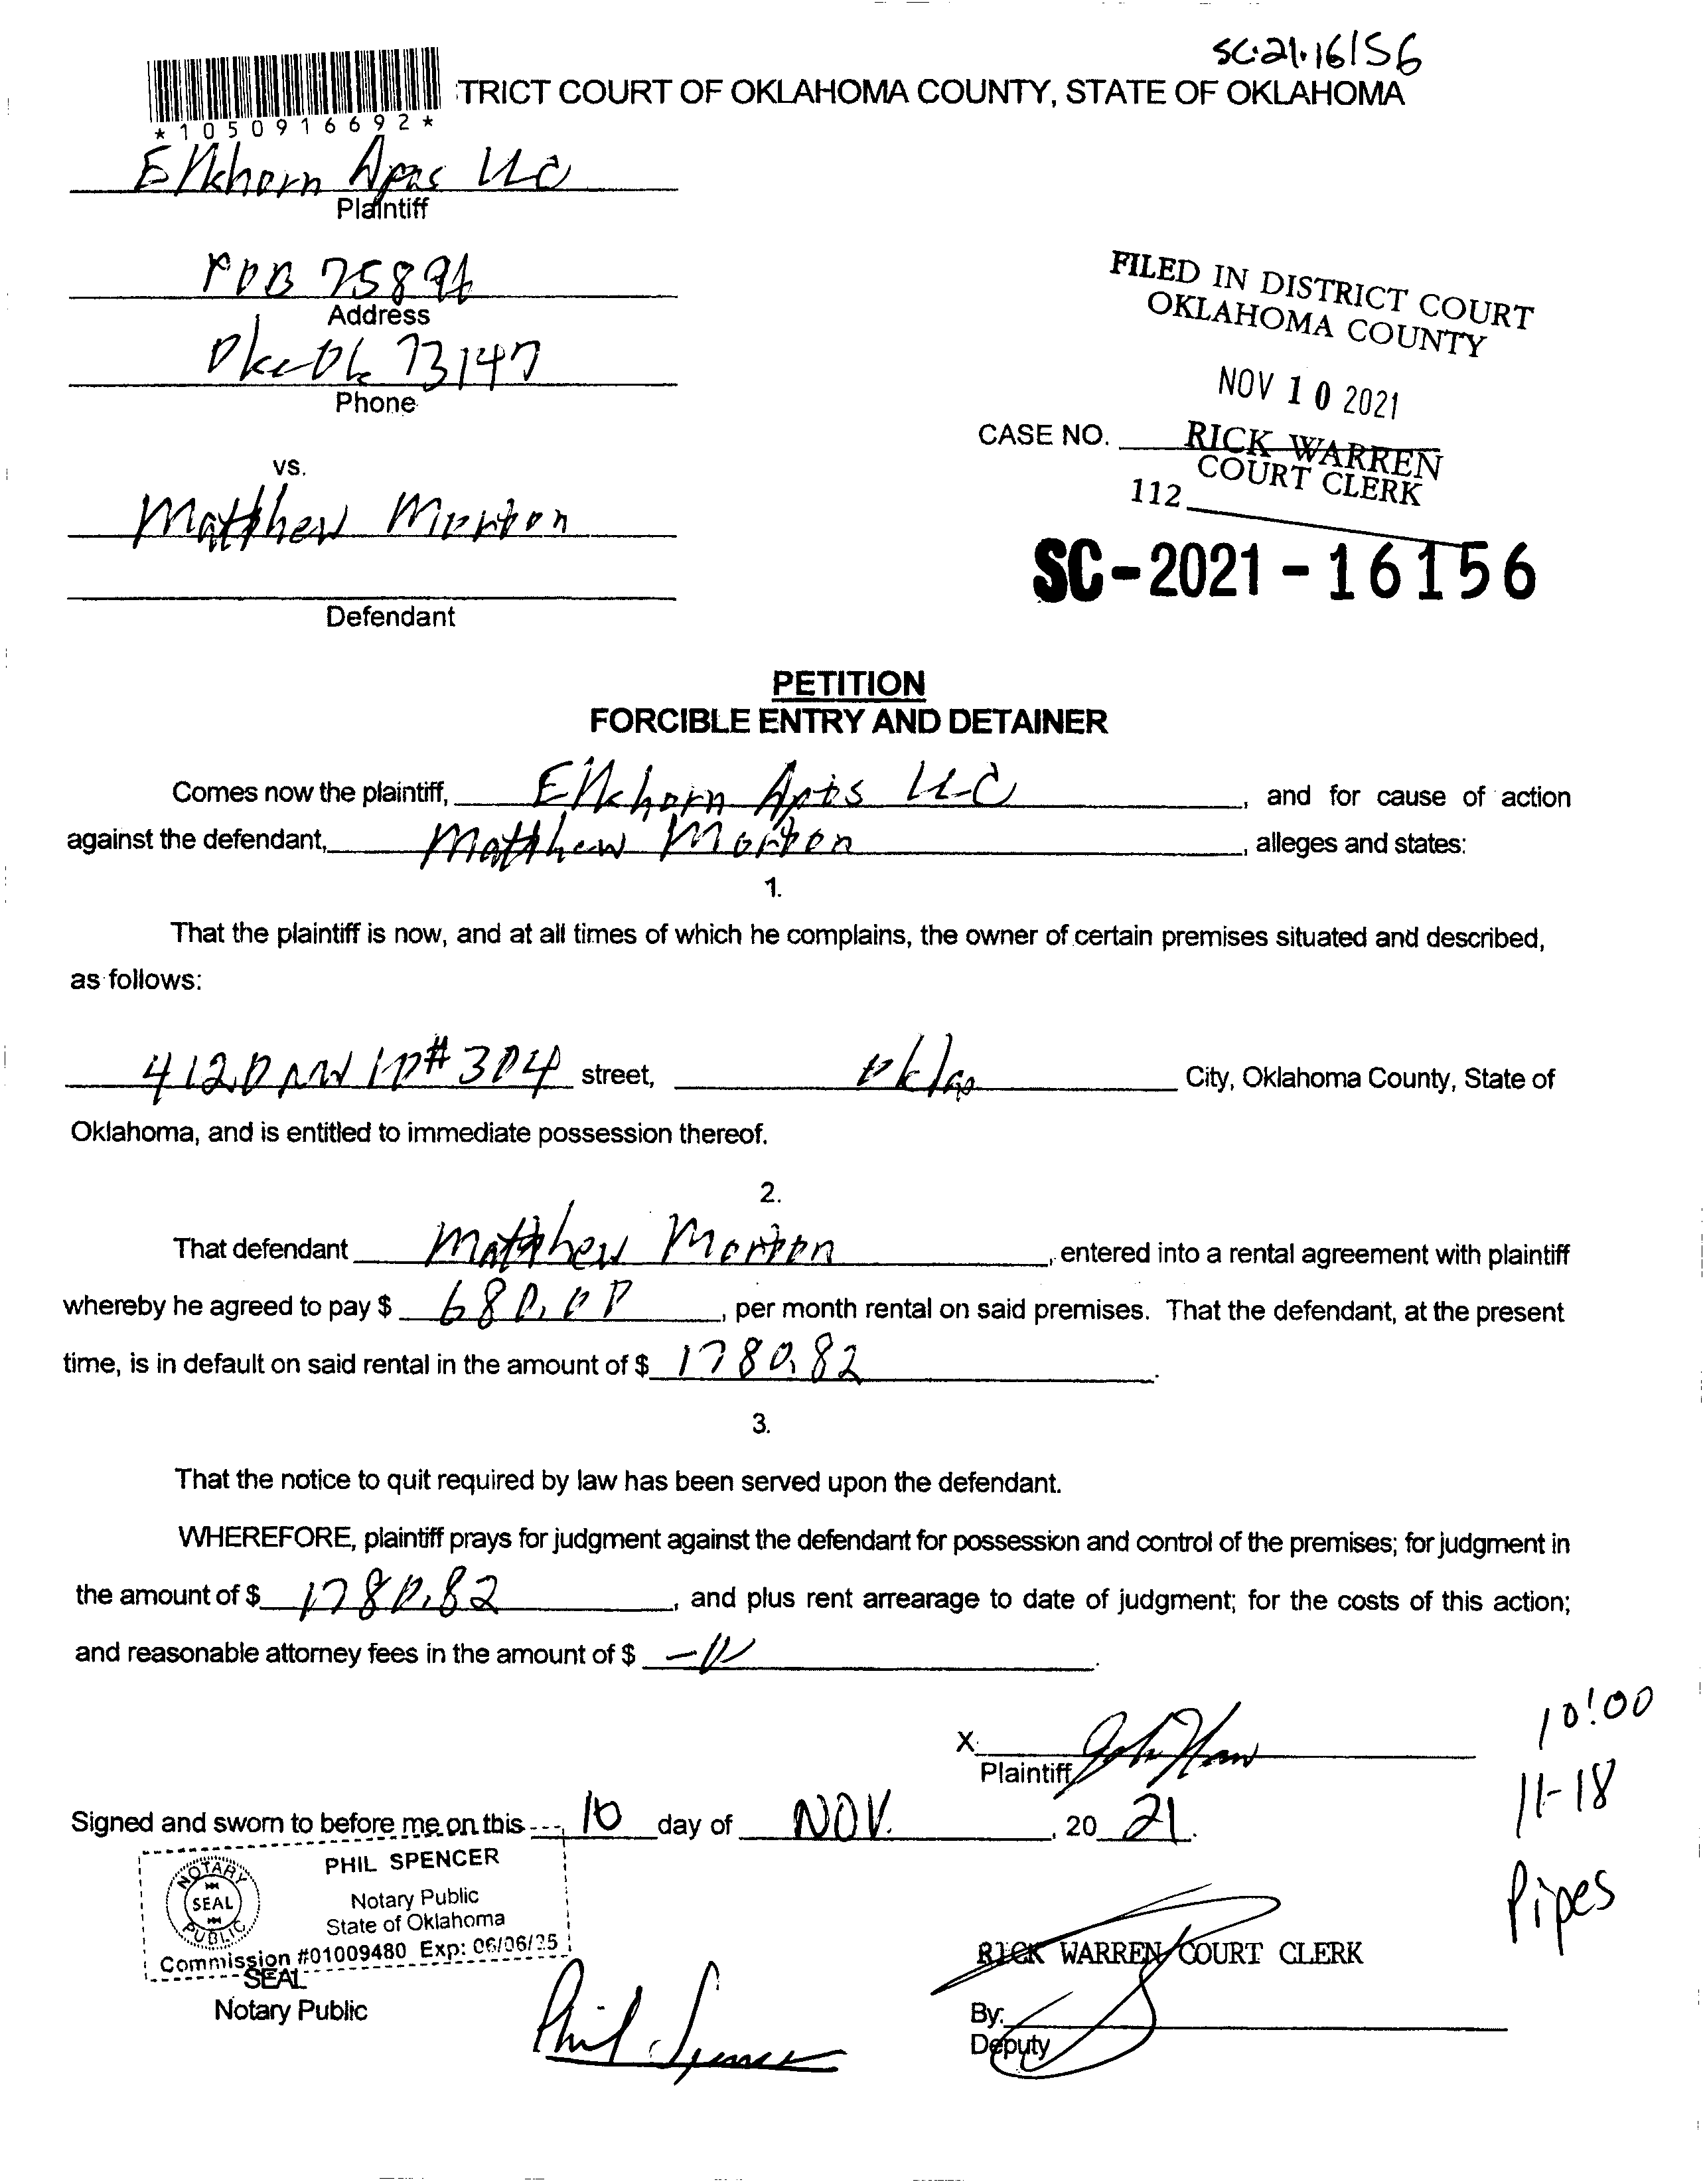 SC.21.16156
TRICT COURT OF OKLAHOMA COUNTY, STATE OF OKLAHOMA
*1050916692*
Elkhorn Apts LLC
Plaintiff
POB 75894
Address
Okc Ok 73147
Phone
FILED IN DISTRICT COURT
OKLAHOMA COUNTY
NOV 10 2021
CASE NO.
RICK WARREN
COURT CLERK
112
vs.
Matthew Morton
SC-2021-16156
Defendant
PETITION
FORCIBLE ENTRY AND DETAINER
Comes now the plaintiff, Elkhorn Apts LLC, and for cause of action
against the defendant, Matthew Morton, alleges and states:
1.
That the plaintiff is now, and at all times of which he complains, the owner of certain premises situated and described,
as follows:
4120 NW 10 #304 street, City, Oklahoma County, State of
Oklahoma, and is entitled to immediate possession thereof.
2.
That defendant Matthew Morton, entered into a rental agreement with plaintiff
whereby he agreed to pay $ 680.00, per month rental on said premises. That the defendant, at the present
time, is in default on said rental in the amount of $ 1780.82.
3.
That the notice to quit required by law has been served upon the defendant.
WHEREFORE, plaintiff prays for judgment against the defendant for possession and control of the premises; for judgment in
the amount of $ 1780.82, and plus rent arrearage to date of judgment; for the costs of this action;
and reasonable attorney fees in the amount of $ .
10:00
X
Plaintiff
11-18
Signed and sworn to before me on this 10 day of NOV., 20 21.
PHIL SPENCER
Notary Public
State of Oklahoma
Commission #01009480 Exp: 06/06/25
NOTARY
SEAL
PUBLIC
Pipes
SEAL
Notary Public
Phil Spencer
RICK WARREN COURT CLERK
By:
Deputy